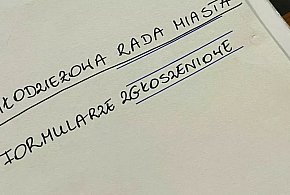 MŁODZIEŻOWA RADA MIASTA
FORMULARZE ZGŁOSZENIOWE